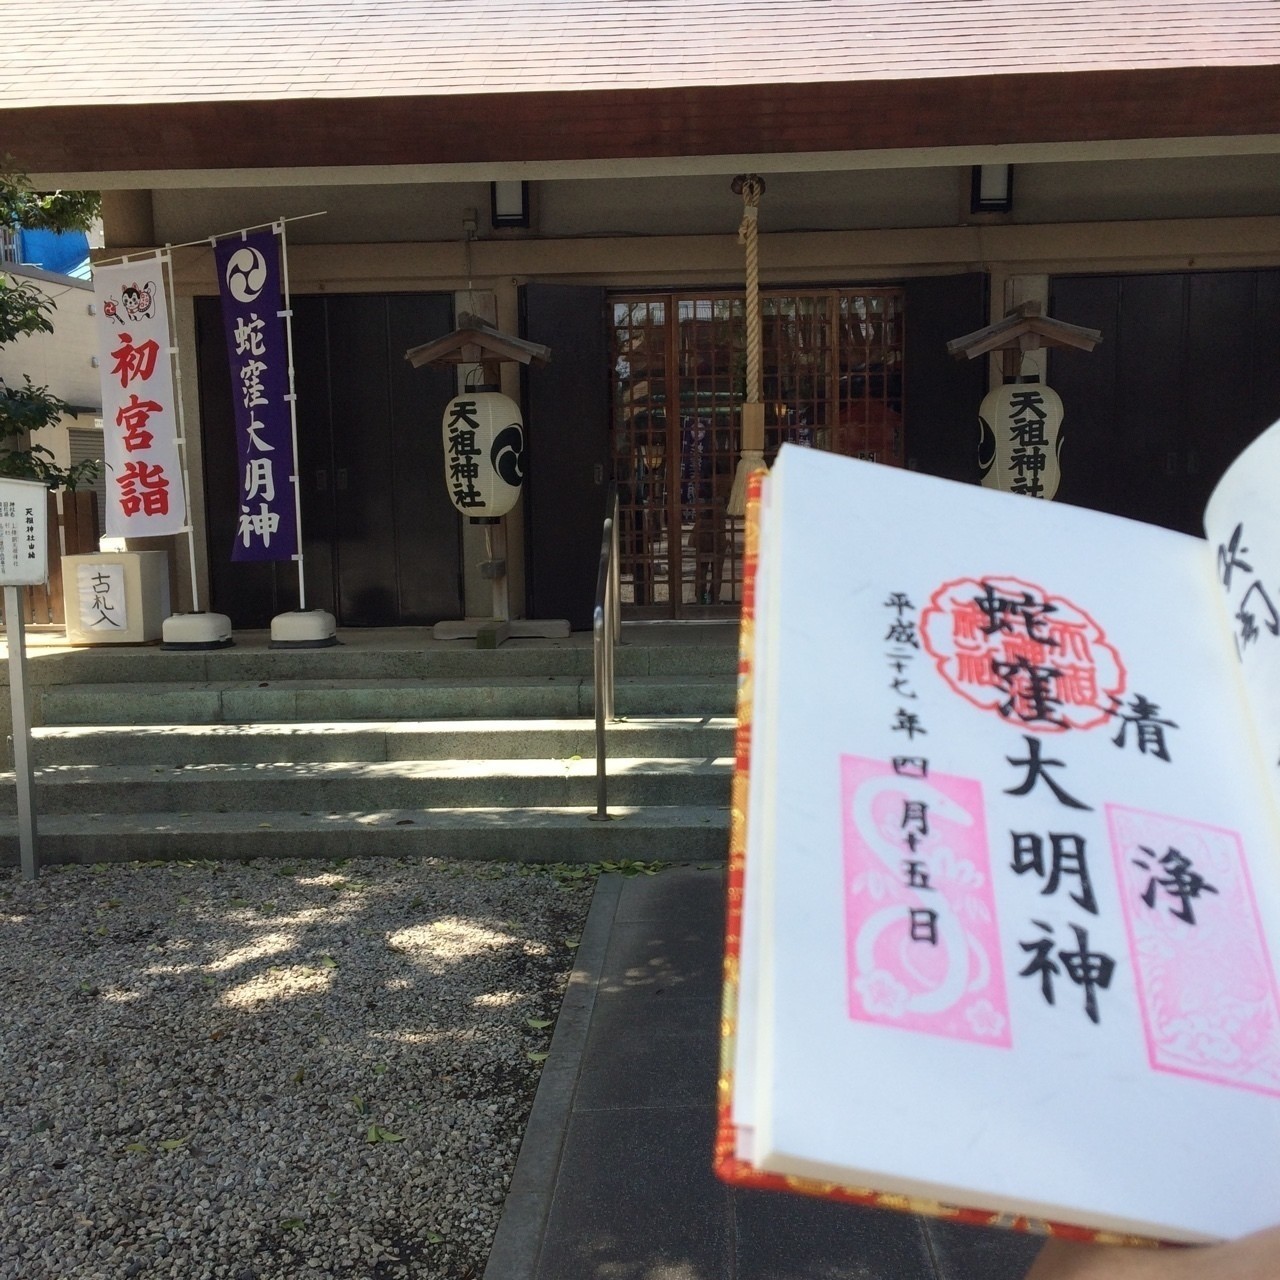 初宮詣
蛇窪大明神
天祖神社
天祖神社
古札入
天祖神社由緒
清浄
蛇窪大明神
平成二十七年四月十五日